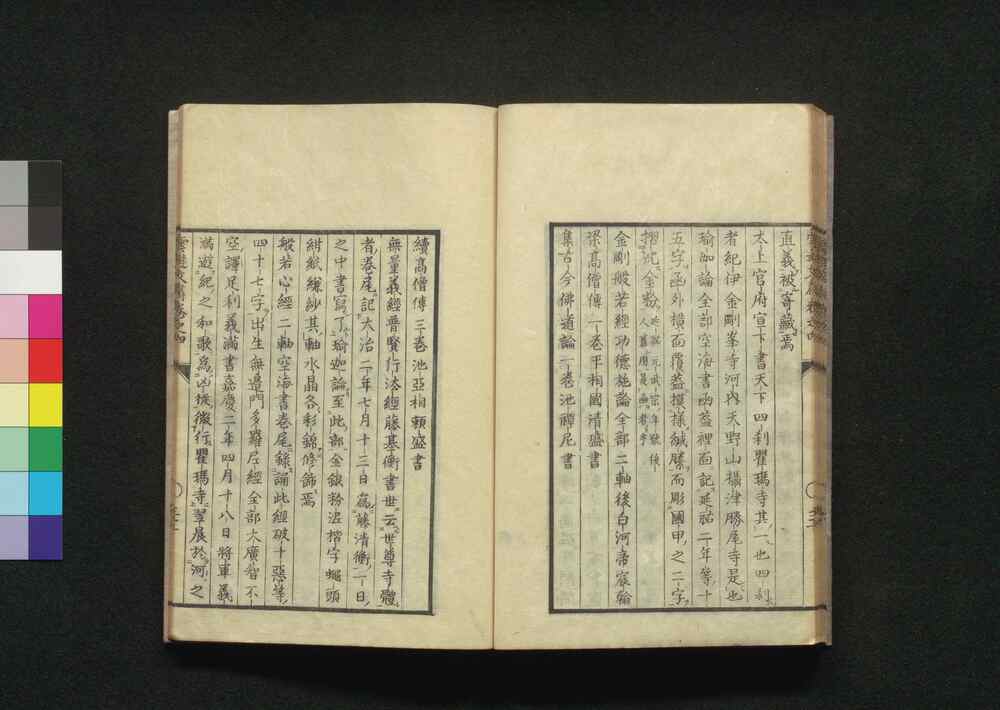 直義被寄藏焉
太上官府宣下書天下四刹瞿瑪寺其一也四刹
者紀伊金剛峯寺河内天野山攝津勝尾寺是也
瑜伽論全部空海書函蓋裡面記延祐二年等十
五字函外横面覆蓋摸樣緘縢而彫國甲之二字
金剛般若經功德施論全部二軸後白河帝宸翰
梁高僧傳一卷平相國清盛書
集古今佛道論一卷池禪尼書
續高僧傳三卷池亞相賴盛書
無量義經普賢行法經藤基衡書世云世尊寺體
者卷尾記大治二年七月十三日為藤清衡一日
之中書寫了瑜迦論至此部金銀粉泥楷字蠅頭
紺紙縹紗其軸水晶各彩錦修飾焉
般若心經二軸空海書卷尾錄誦此經破十惡等
四十七字出生無邊門多羅尼經全部大廣智不
空譯足利義滿書嘉慶二年四月十八日將軍義
滿遊紀之和歌為凶徒微行瞿瑪寺翌展於河之